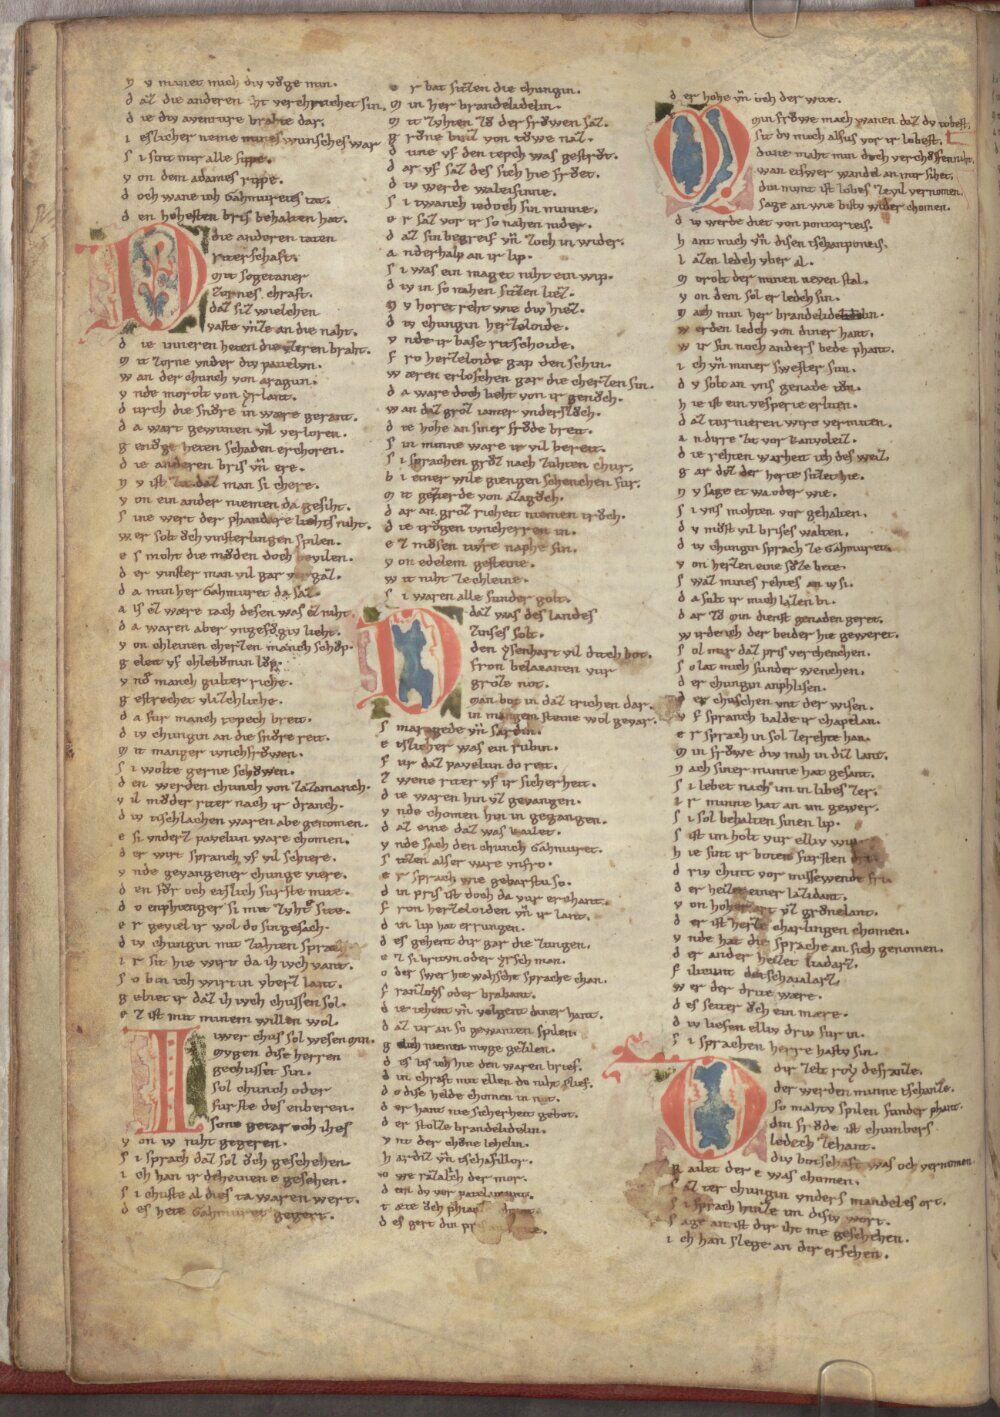 v v manet mich div vǒge min.
d az die anderen niht verchrichet sin.
d ie div aventure brahte dar.
i eslicher neme mines wunsches war
s i sint mir alle sippe.
v on dem adames rippe.
d och wane ich Gahmuretes tat.
d en hohesten bris behalten hat.
D die anderen taten
riterschaft.
mit sogetaner
zornes chraft.
daz siz wielchen
vaste vnze an die naht.
d ie inneren heten die vzeren braht.
m it zorne vnder div pavelvn.
w an der chunch von aragun.
v nde morolt von yrlant.
d urch die snǒre in ware gerant.
d a wart gewunen vñ verloren.
g enǒge heten schaden erchoren.
d ie anderen bris vñ ere.
n v ist daz man si chere.
v on ein ander niemen da gesiht.
s ine wert der phandare liehts niht.
w er solt ǒch vinsterlingen spilen.
e s moht die mǒden doch bevilen.
d er vinster man vil gar vergaz.
d a min her Gahmuret da saz.
a ls ez ware tach desen was ez niht.
d a waren aber vngefǒgiv lieht.
v on chleinen cherzen manch schǒp.
g eleit vf ohlebǒmin lǒp.
v nǒ manch gulter riche.
g estrechet vlizchliche.
d a fur manch tepech breit.
d iv chungin an die snǒre reit.
m it manger wnchfrǒwen.
s i wolte gerne schǒwen.
d en werden chunch von zazamanch.
v il mǒder riter nach ir dranch.
d iv tischlachen waren abe genomen.
e si vnderz pavelun ware chomen.
d er wirt spranch vf vil schiere.
v nde gevangener chunge viere.
d en fǒr och etslich furste mite.
d o enphienger si mit zvhte site.
e r geviel ir wol do singesach.
d iv chungin mit zuhten sprach
i r sit hie wirt da ih iwch vant.
s o bin ich wirtin vberz lant.
g ebiet ir daz ih iwch chussen sol.
e z ist mit minem willen wol
I iwer chus sol wesen min.
mvgen dise herren
gechusset sin.
sol chunch oder
furste des enberen.
sone getar och ihes
v on iv niht gegeren.
s i sprach daz sol ǒch geschehen.
i ch han ir deheinen e gesehen.
s i chuste al dies ta waren wert.
d es hete Gahmuret gegert.
e r bat sitzen die chungin.
m in her brandelidelin.
m it zvhten zǒ der frǒwen saz.
g rǒne binz von tǒwe naz.
d une vf den tepch was gestrǒt.
d ar vf saz des sich hie frǒet.
d iv werde waleisinne.
s i twanch iedoch sin minne.
o r saz vor ir so nahen nider.
d az sin begreif vñ zoch in wider.
a nderhalp an ir lip.
s i was ein maget niht ein wip.
d iv in so nahen sitzen liez.
n v horet reht wie div hiez.
d iv chungin herzeloide.
v nde ir base ritschoide.
f ro herzeloide gap den schin.
w æren erloschen gar die cherzen sin.
d a ware doch lieht von ir genǒch.
w an daz groz iamer vnderslǒch.
d ie hohe an siner frǒde breit.
s in minne ware ir vil bereit.
s i sprachen groz nach zuhten chur.
b i einer wile giengen schenchen fur.
m it gezierde von azagǒch.
d ar an groz richeit niemen trǒch.
d ie trǒgen iuncherren in.
e z mǒsen tiwre naphe sin.
v on edelem gesteine.
w it niht zechleine.
s i waren alle sunder golt.
D daz was des landes
zinses solt.
den ysenhart vil dicch bot.
fron belacanen vur
groze not.
man bot in daz trichen dar.
in mangem steine wol gevar.
s maragede vñ sardin.
e tslicher was ein rubin.
f ur daz pavelun do reit.
z wene riter vf ir sicherheit.
d ie waren hin vz gevangen.
v nde chomen hin in gegangen.
d az eine daz was kailet.
v nde sach den chunch Gahmuret.
s itzen alser ware vnfro.
e r sprach wie gebarstu so.
d in pris ist doch da vur erchant.
f ron herzeloiden vñ ir lant.
d in lip hat errungen.
d es gehent dir gar die zungen.
e z si brituvn oder yrsch man.
o der swer hie walhsche sprache chan.
f ranzoys oder brabant.
d ie iehent vñ volgent diner hant.
d az dir an so gewanten spilen.
g elich niemen mvge gezilen.
d es lis ich hie den waren brief.
d in chraft mit ellen do niht slief.
d o dise helde chomen in not.
d er hant nie sicherheit gebot.
d er stolze brandelidelin.
v nt der chǒne lehelin.
h ardiz vñ tschaffillor.
o we razalich der mor.
d em dv vor patelamunt.
t æte ǒch phian
d es gert din pris
d er hohe vñ ǒch der wite.
M min frǒwe mach wanen daz dv tobest.
sit dv mich alsus vor ir lobest.
dune maht min doch verchǒffen niht.
wan etswer wandel an mir siht.
din munt ist lobes zevil vernomen.
sage an wie bistv wider chomen.
d iv werde diet von pontorteis.
h ant mich vñ disen tschanponeis.
l azen ledch vber al.
m orolt der minen neven stal.
v on dem sol er ledch sin.
m ach min her brandelidelin.
w erden ledch von diner hant.
w ir sin noch anders bede phant.
i ch vñ miner swester sun.
d v solt an vns genade tǒn.
h ie ist ein vesperie erliten.
d az turnieren wirt vermiten.
a n dirre zit vor kanvoleiz.
d ie rehten warheit ich des weiz.
g ar div vz der herte sitzet hie.
n v sage et wa oder wie.
s i vns mohten vor gehalten.
d v mǒst vil brises walten.
d iv chungin sprach ze Gahmuret.
v on herzen eine sǒze bete.
s waz mines rehtes an iv si.
d a sult ir mich lazen bi.
d ar zǒ min dienst genaden geret.
w irde ich der beider hie geweret.
s ol iwer daz pris verchrenchen.
s o lat mich sunder wenchen.
d er chungin anphlisen.
d er chuschen vnt der wisen.
v f spranch balde ir chapelan.
e r sprach in sol zerehte han.
m in frǒwe div mih in diz lant.
n ach siner minne hat gesant.
s i lebet nach im in libes zer.
i r minne hat an im gewer.
s i sol behalten sinen lip.
s ist im holt vur elliv wip
h ie sint ir boten fursten
d riv chint vor missewende fri.
d er heizet einer lazidant.
v on hoher art vz grǒnelant.
d er ist herze charlingen chomen.
v nde hat die sprache an sich genomen.
d er ander heizet liadarz.
f ilivunt detschatalarz
w er der drite wære.
d es seiter ǒch ein mære.
d iv liesen elliv driv fur in.
s i sprachen herre hastv sin.
D dir zelt roy defranze.
der werden minne tschanze.
so mahtv spilen sunder phant.
din frǒde ist chumbers
ledech zehant.
div botschaft was och vernomen
k ailet der e was chomen.
s az ter chungin vnders mandeles ort.
s i sprach hinze im disiv wort.
s age an ist dir iht me geschehen.
i ch han slege an dir ersehen.